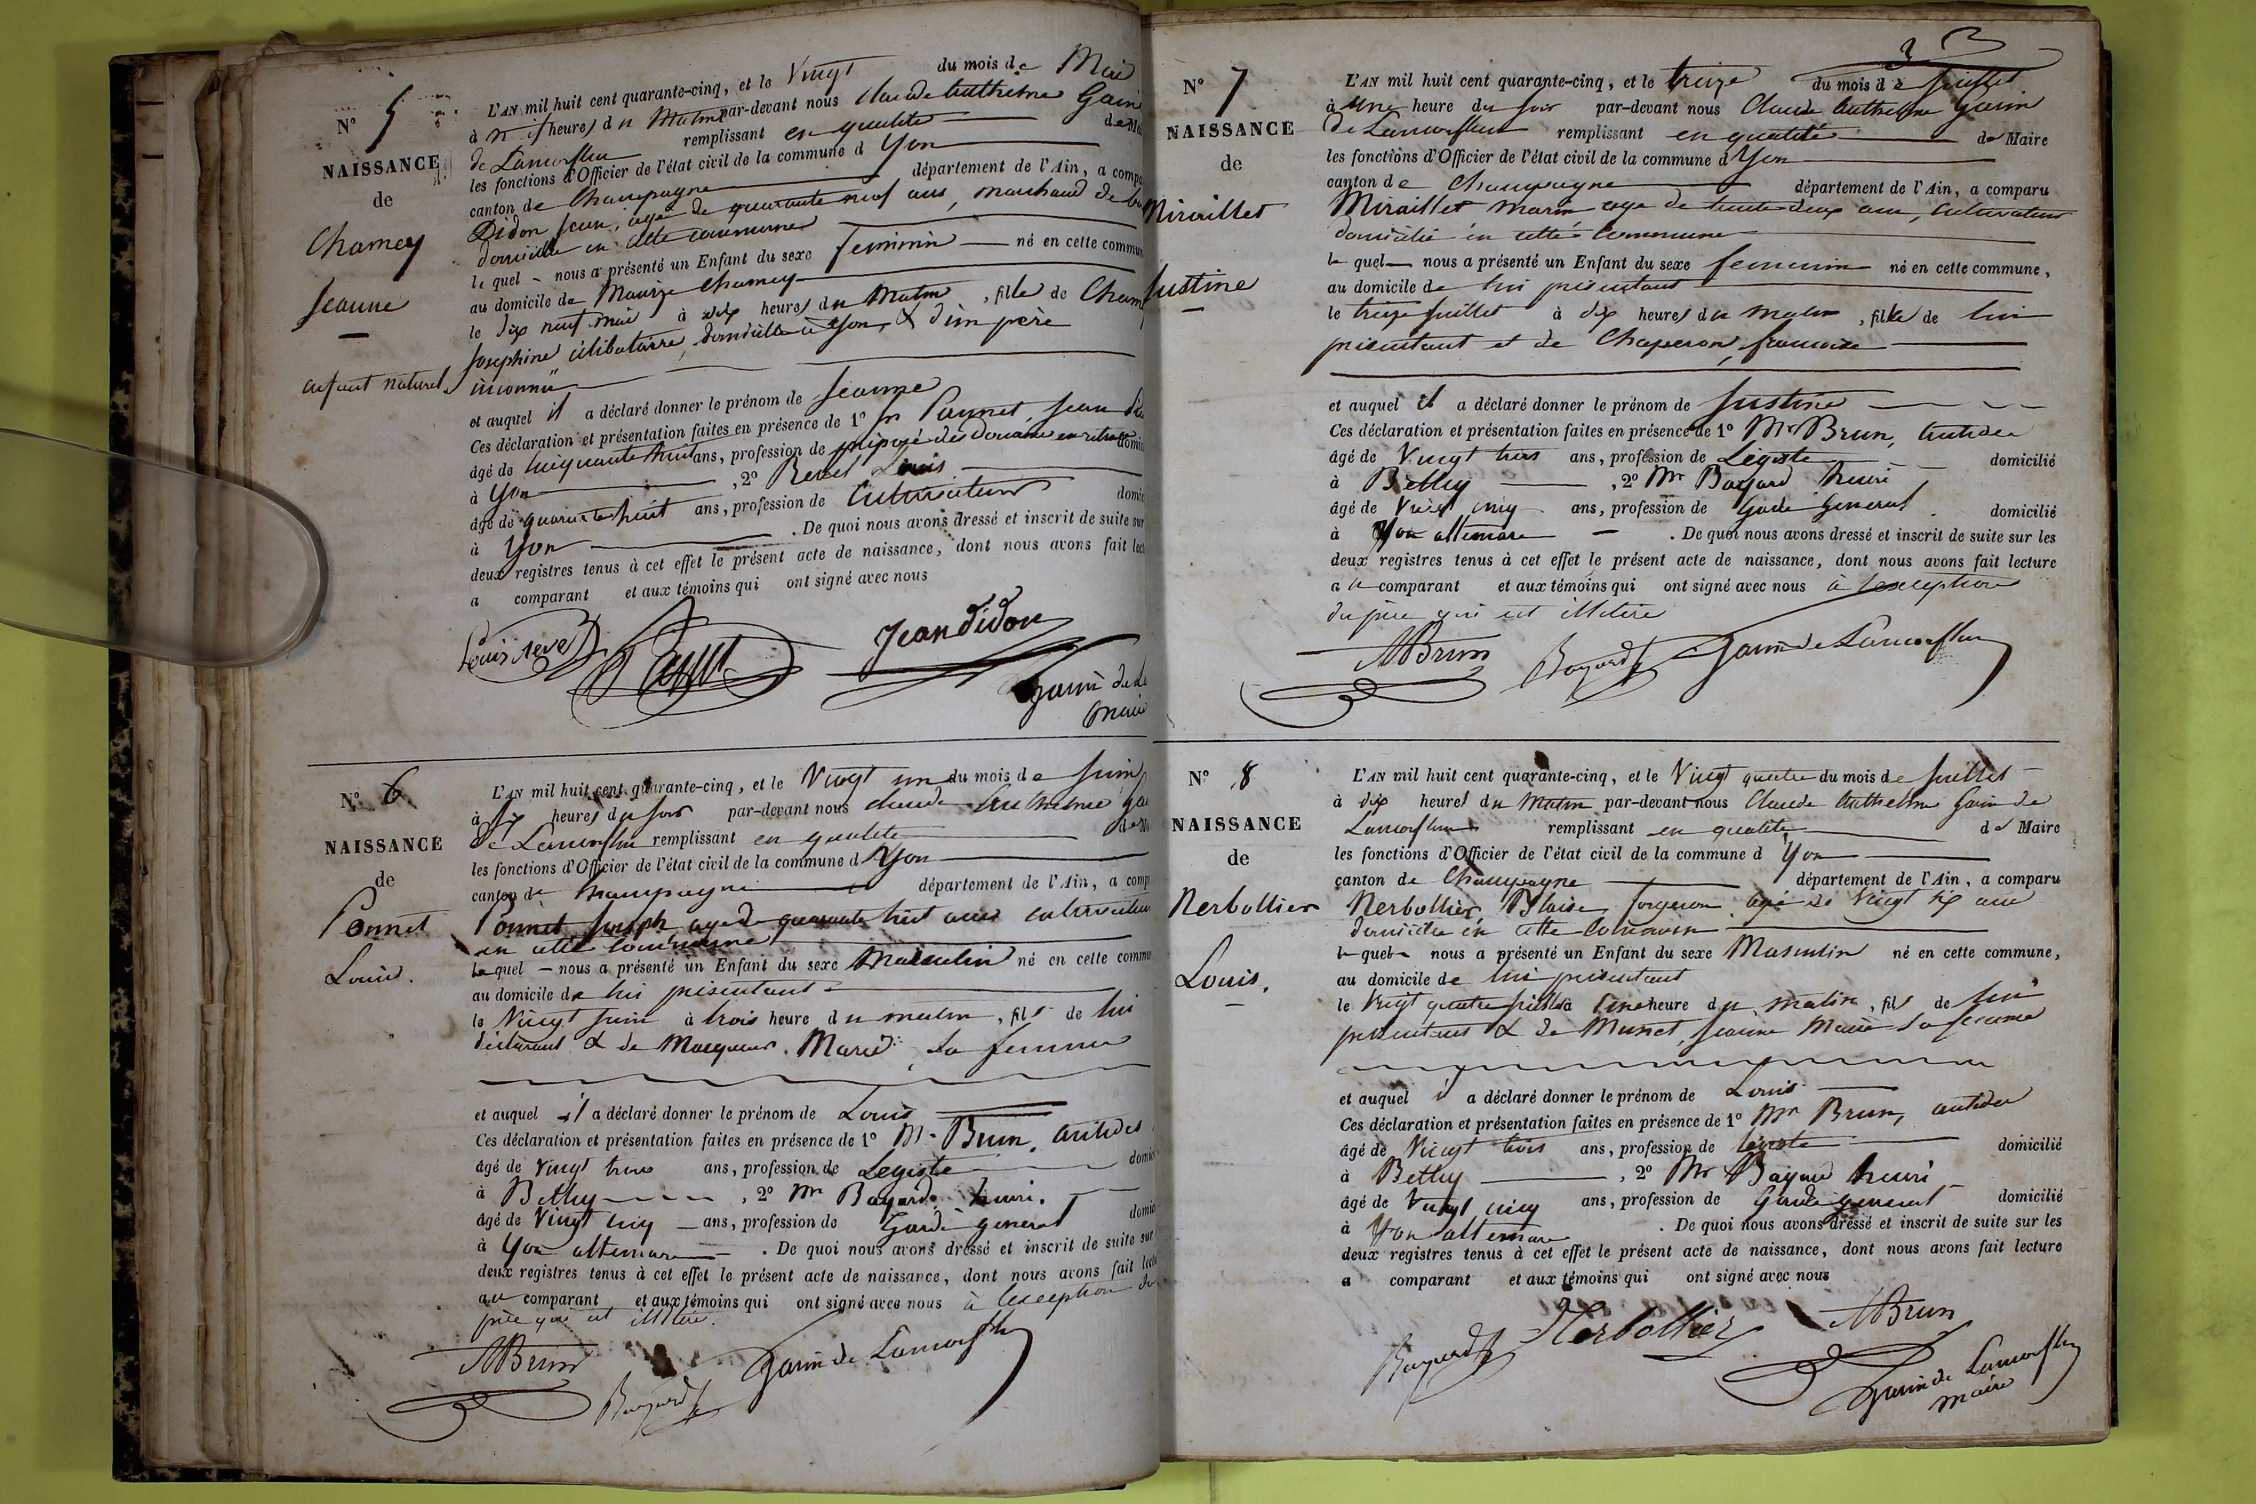 N° 5
NAISSANCE
de
Chamey
Jeanne
enfant naturel
L'AN mil huit cent quarante-cinq, et le Vingt du mois de Mai
à neuf heures du Matin par-devant nous Claude Anthelme Garin
de Lamorflan remplissant en qualité de
les fonctions d'Officier de l'état civil de la commune d Yon
canton de Champagne département de l'Ain, a
Didon Jean, agé de quarante neuf ans, marchand de
domicilié en cette commune
le quel nous a présenté un Enfant du sexe feminin né en cette
au domicile de Chamey
le dix neuf mai à dix heures du Matin, fille de
Josephine célibataire, domiciliée à Yon, & d'un père
inconnu
et auquel il a déclaré donner le prénom de Jeanne
Ces déclaration et présentation faites en présence de 1° Jean
âgé de cinquante huit ans, profession de préposé des Douanes en retraite
à Yon, 2° Revel Louis
âgé de quarante huit ans, profession de Cultivateur
à Yon. De quoi nous avons dressé et inscrit de suite sur
deux registres tenus à cet effet le présent acte de naissance, dont nous avons fait
a comparant et aux témoins qui ont signé avec nous
Louis Revel Jean Didon
Garin de
N° 6
NAISSANCE
de
Ponnet
Louis.
L'AN mil huit cent quarante-cinq, et le Vingt un du mois de Juin
à six heures du soir par-devant nous Claude Anthelme
de Lamorflan remplissant en qualité
les fonctions d'Officier de l'état civil de la commune d Yon
canton de Champagne département de l'Ain, a
Ponnet Joseph agé de quarante huit ans cultivateur
en cette commune
le quel nous a présenté un Enfant du sexe Masculin né en cette
au domicile de lui présentant
le Vingt Juin à trois heure du matin, fils de lui
déclarant & de Marie sa femme
et auquel il a déclaré donner le prénom de Louis
Ces déclaration et présentation faites en présence de 1° Mr Brun, Antides
âgé de Vingt trois ans, profession de Légiste
à Belley, 2° Mr Bayard henri.
âgé de Vingt cinq ans, profession de Garde général
à Yon artemare. De quoi nous avons dressé et inscrit de suite sur
deux registres tenus à cet effet le présent acte de naissance, dont nous avons fait
au comparant et aux témoins qui ont signé avec nous à l'exception du
père qui est illitéré.
ABrun Bayard Garin de Lamorflan
3
N° 7
NAISSANCE
de
Miraillet
Justine
L'AN mil huit cent quarante-cinq, et le treize du mois de Juillet
à une heure du soir par-devant nous Claude Anthelme Garin
de Lamorflan remplissant en qualité de Maire
les fonctions d'Officier de l'état civil de la commune d Yon
canton de Champagne département de l'Ain, a comparu
Miraillet Marin agé de trente deux ans, cultivateur
domicilié en cette commune
le quel nous a présenté un Enfant du sexe feminin né en cette commune,
au domicile de lui présentant
le treize Juillet à dix heures du matin, fille de lui
présentant et de Chaperon, francoise
et auquel il a déclaré donner le prénom de Justine
Ces déclaration et présentation faites en présence de 1° Mr Brun, Antides
âgé de Vingt trois ans, profession de Légiste domicilié
à Belley, 2° Mr Bayard henri
âgé de Vingt cinq ans, profession de Garde Général. domicilié
à Yon artemare. De quoi nous avons dressé et inscrit de suite sur les
deux registres tenus à cet effet le présent acte de naissance, dont nous avons fait lecture
a comparant et aux témoins qui ont signé avec nous à l'exception
du père qui est illitéré
ABrun Bayard Garin de Lamorflan
N° 8
NAISSANCE
de
Nerbollier
Louis.
L'AN mil huit cent quarante-cinq, et le Vingt quatre du mois de Juillet
à dix heures du Matin par-devant nous Claude Anthelme Garin de
Lamorflan remplissant en qualité de Maire
les fonctions d'Officier de l'état civil de la commune d Yon
canton de Champagne département de l'Ain, a comparu
Nerbollier, Blaise forgeron agé de Vingt six ans
domicilié en cette commune
le quel nous a présenté un Enfant du sexe Masculin né en cette commune,
au domicile de lui présentant
le Vingt quatre juillet à une heure du matin, fils de lui
présentant & de Munet, Jeanne Marie sa femme
et auquel il a déclaré donner le prénom de Louis
Ces déclaration et présentation faites en présence de 1° Mr Brun, Antides
âgé de Vingt trois ans, profession de légiste domicilié
à Belley, 2° Mr Bayard henri
âgé de Vingt cinq ans, profession de Garde général domicilié
à Yon artemare. De quoi nous avons dressé et inscrit de suite sur les
deux registres tenus à cet effet le présent acte de naissance, dont nous avons fait lecture
a comparant et aux témoins qui ont signé avec nous
Bayard Nerbollier ABrun
Garin de Lamorflan
maire